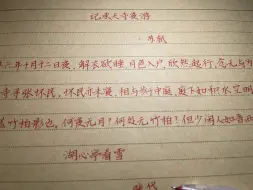 记承天寺夜游
苏轼
六年十月十二日夜,解衣欲睡,月色入户,欣然起行,念无与
寺寻张怀民,怀民亦未寝,相与步中庭,庭下如积水空明
盖竹柏影也,何夜无月?何处无竹柏?但少闲人如吾
湖心亭看雪